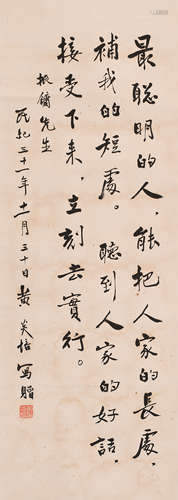 最聰明的人，能把人家的長處，
補我的短處。聽到人家的好話，
接受下來，立刻去實行。
振鏞先生
民紀三十一年十一月三十日黃炎培寫贈